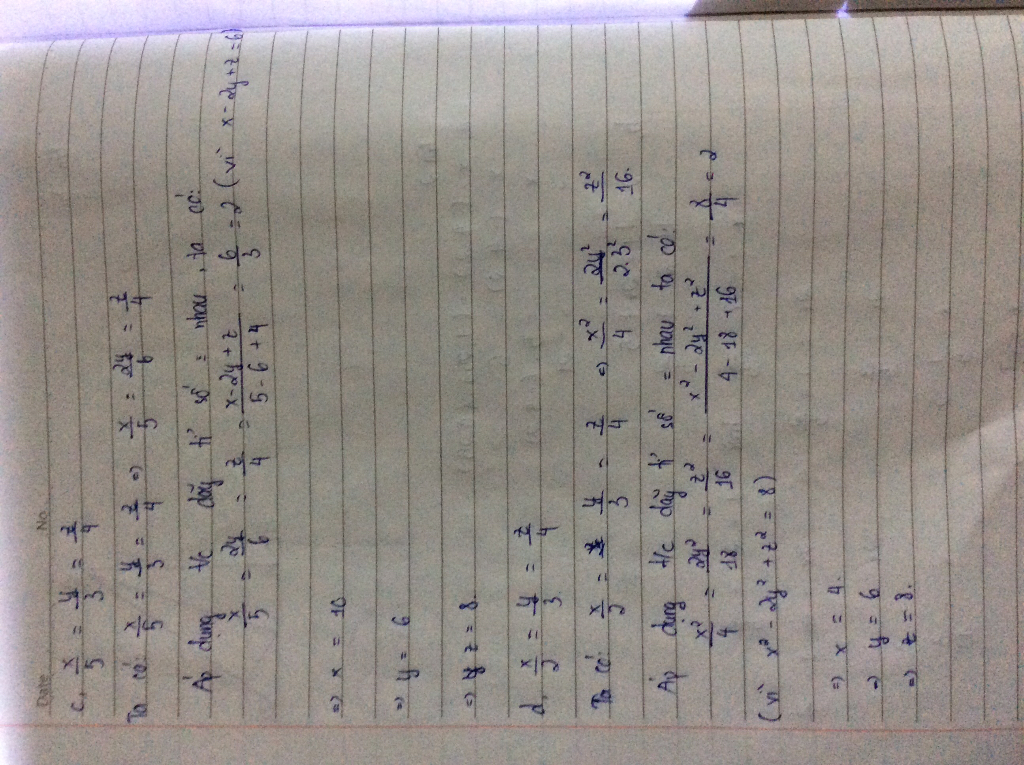 Date No.
c, x/5 = y/3 = z/4
Ta có: x/5 = y/3 = z/4 => x/5 = 2y/6 = z/4
Áp dụng t/c dãy tỉ số = nhau, ta có:
x/5 = 2y/6 = z/4 = (x - 2y + z)/(5 - 6 + 4) = 6/3 = 2 (vì x - 2y + z = 6)
=> x = 10
=> y = 6
=> z = 8.
d, x/2 = y/3 = z/4
Ta có: x/2 = y/3 = z/4 => x²/4 = 2y²/2.3² = z²/16.
Áp dụng t/c dãy tỉ số = nhau ta có:
x²/4 = 2y²/18 = z²/16 = (x² - 2y² + z²)/(4 - 18 + 16) = 8/4 = 2
(vì x² - 2y² + z² = 8)
=> x = 4.
=> y = 6
=> z = 8.